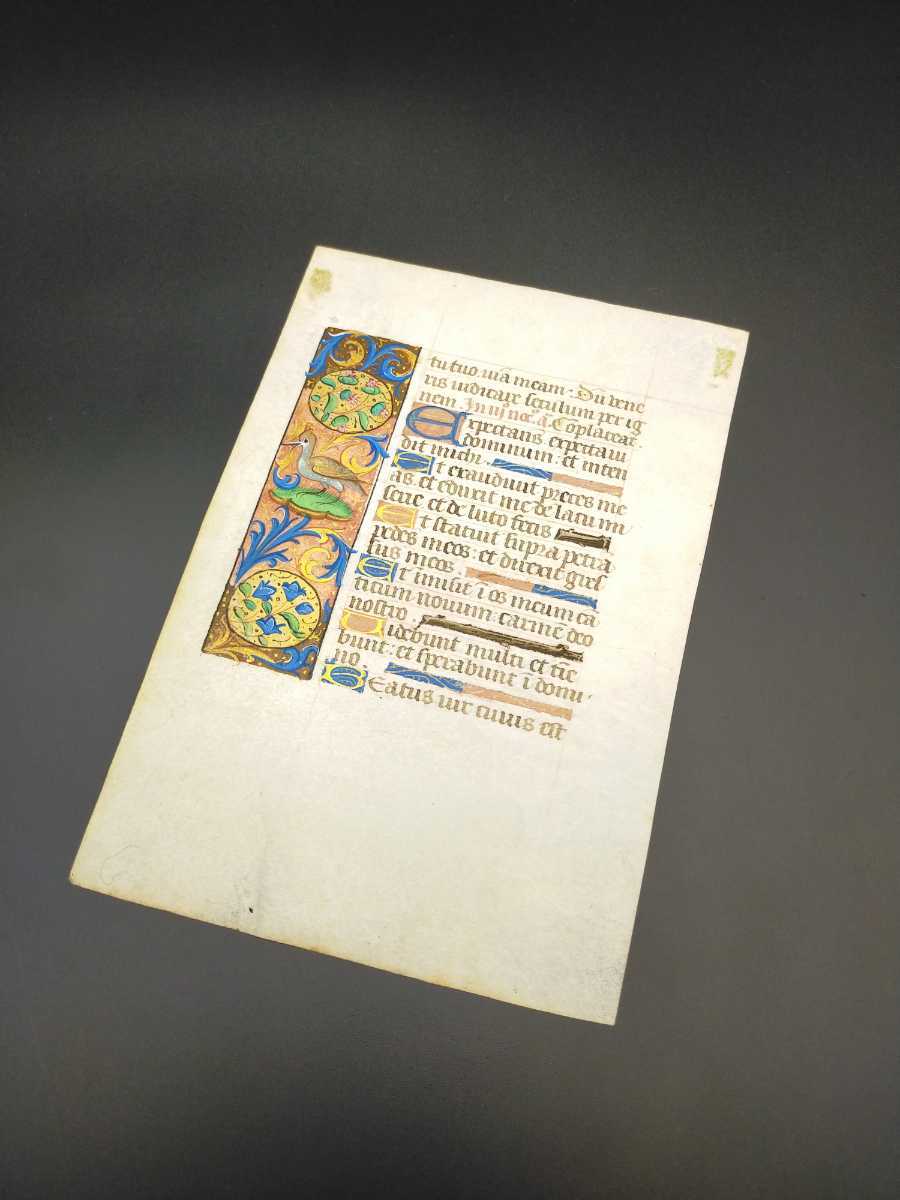 tu tuo. uiã meam: Dũ uene
ris iudicare seculum per ig
nem. In iij noct̃ ã. Cõplaceat.
Expectans expectaui
dominum: et inten
dit michi.
Et exaudiuit preces me
as: et eduxit me de lacu mi
serie et de luto fecis
Et statuit supra petrã
pedes meos: et direxit gres
sus meos.
Et imisit ĩ os meum cã
ticum nouum: carmẽ deo
nostro.
Uidebunt multi et tĩe
bunt: et sperabunt ĩ domi
no.
Beatus uir cuius est